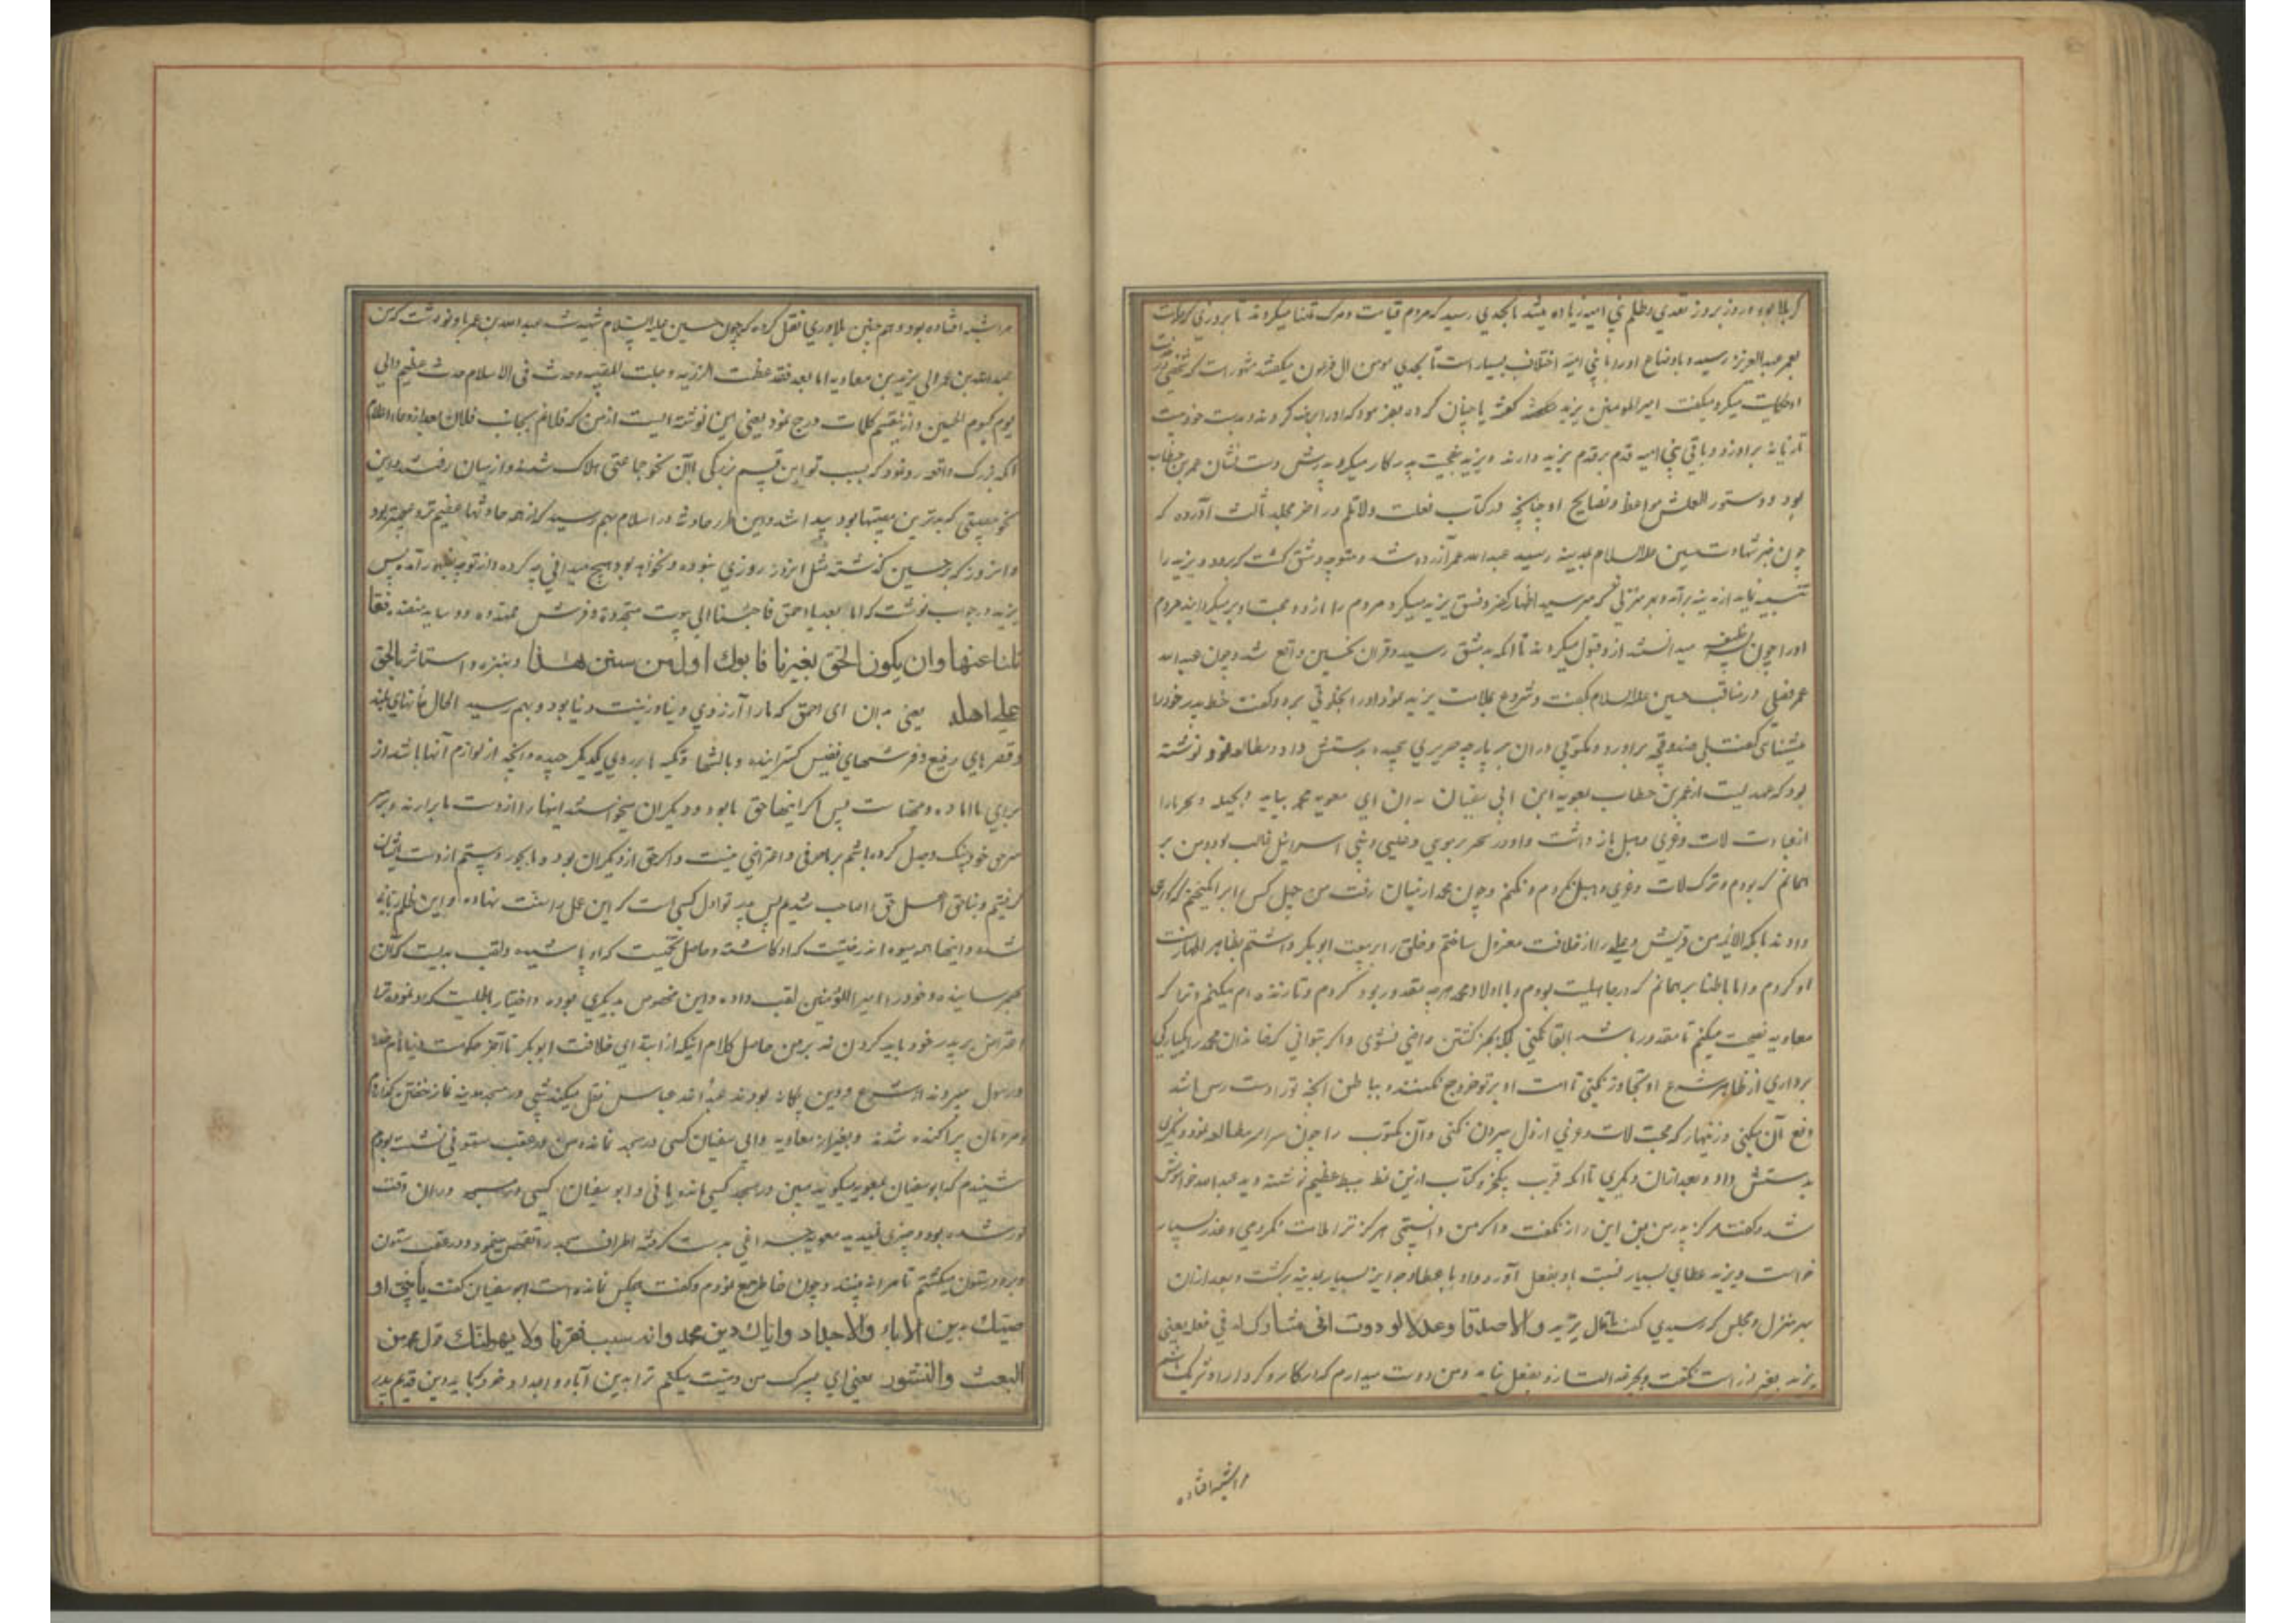 کربلا بود و روز بروز تعدی و ظلم بنی امیه زیاده میشد تا بحدی رسید که مردم قیامت و مرک تمنا میکردند تا بروزی که خلافت
بعمر عبدالعزیز رسید و با اوضاع او را با بنی امیه اختلاف بسیار است تا بحدی مومن ال فرعون میکفتند مشهور است که شخصی نزد
او حکایت میکرد میکفت امیرالمومنین یزید کفته یا چنان کرده بفرمود که او را برهنه کردند و بدست خود بیست
تازیانه بر او زد و باقی بنی امیه قدم بر قدم یزید دارند و یزید بنصیحت پدر کار میکرد و پدرش دست نشان عمر بن خطاب
بود و دستور العملش مواعظ و نصایح او چنانچه در کتاب فعلت و لاتلم در اخر مجلد ثالث آورده که
چون خبر شهادت حسین علیه السلام بمدینه رسید عبدالله عمر آزرده شد و متوجه دمشق کشت که برود و یزید را
تنبیه نماید از مدینه برآمد و بهر منزلی که میرسید اظهار کفر و فسق یزید میکرد و مردم را ازو و محبت او بر میکردانید مردم
او را چون خلیفه میدانستند ازو قبول میکردند تا آنکه بدمشق رسید و قران نحسین واقع شد و چون عبدالله
عمر فصلی در مناقب حسین علیه السلام بکفت و شروع بملامت یزید نمود او را بخلوتی برد و کفت خط پدر خود را
میشناسی کفت بلی صندوقچه برآورد و مکتوبی در ان بر پارچه حریری پیچیده بدستش داد و مطالعه نمود نوشته
بود که عهدیست از عمر بن خطاب بمعویه ابن ابی سفیان بدان ای معویه محمد بیامد و بحیله و سحر ما را
از عبادت لات و عزی و هبل باز داشت و او در سحر بر موسی و عیسی و بنی اسرائیل غالب بود و من بر
همانم که بودم و ترک لات و عزی و هبل نکردم و نکنم و چون محمد از میان رفت من چهل کس را برانکیختم که کواهی
دادند بانکه الائمة من قریش و علی را از خلافت معزول ساختم و خلق را بر بیعت ابوبکر داشتم بظاهر اظهار ملت
او کردم و اما باطنا بر همانم که در جاهلیت بودم و با اولاد محمد هر چه مقدور بود کردم و تا زنده ام میکنم و ترا که
معاویه نصیحت میکنم تا مقدور باشد ابقا نکنی بلکه بجز کشتن راضی نشوی و اکر بتوانی که خاندان محمد را یکبارکی
برداری از ظاهر شرع او تجاوز نکنی تا امت او بر تو خروج نکنند و بباطن انچه ترا دست رس باشد
دفع آن بکنی و زنهار که محبت لات و عزی از دل بیرون نکنی و آن مکتوب را چون سراسر مطالعه نمود دیکری
بدستش داد و بعد ازان دیکری تا آنکه قریب یکجزو کتاب ازین نمط بسط عظیم نوشته دید عبدالله خواموش
شد و کفت هرکز پدر من بمن این راز نکفت و اکر من دانستمی هرکز ترا ملامت نکردمی و عذر بسیار
خواست و یزید عطای بسیار نسبت باو بفعل آورد و او با عطا و جوایز بسیار بمدینه برکشت و بعد ازان
بهر منزل و مجلس که رسیدی کفت ماقال یزید والاصدقا وعدلا لوددت انی مشارکه فی فعله یعنی
یزید بغیر از راست نکفت و بجز عدالت ازو بفعل نیامد و من دوست میدارم که در کار و کردار او شریک باشم
مراشبه افتاده
مراشبه افتاده بود و هم چنین بلاذری نقل کرده که چون حسین علیه السلام شهید شد عبدالله بن عمر باو نوشت که من
عبدالله بن عمر الی یزید بن معاویه اما بعد فقد عظمت الرزیه و جلت المصیبه و حدث فی الاسلام حدث عظیم و لا
یوم کیوم الحسین و ازینقسم کلمات درج نمود یعنی این نوشته ایست از من که فلانم بجانب فلان اما بعد بدان
آنکه بزرک واقعه رو نمود که بسبب تو این قسم بزرکی با آن نحو جماعتی هلاک شدند و از میان رفتند و این
نحو مصیبتی که بدترین مصیبتها بود پیدا شد و این طور حادثه در اسلام بهم رسید که از همه حادثها عظیم تر و عجیبتر بود
و انروز که بر حسین کذشته مثل انروز روزی نبوده و نخواهد بود هیچ میدانی چه کرده و از تو چه بظهور آمده پس
یزید در جواب نوشت که اما بعد یا احمق فاجئنا الی بیوت متجددة و فرش ممهده و وساید منضده فقا
تلنا عنها وان یکون الحق بغیرنا فابوک اول من سن هذا وبتزه واستاثر بالحق
علی اهله یعنی بدان ای احمق که ما را آرزوی دنیا و زینت دنیا بود و بهم رسید الحال خانهای بلند
و قصرهای رفیع و فرشهای نفیس کسترانیده و بالشها و تکیه ها بر روی یکدیکر چیده و انچه از لوازم آنها باشد از
برای ما اماده و مهیاست پس اکر اینها حق ما بود و دیکران میخواستند اینها را از دست ما برآرند و بر سر
حق خود جنک و جدل کرده باشیم بر ما حرفی و اعتراضی نیست و اکر حق از دیکران بود و ما بجور و ستم از دست ایشان
کرفتیم و بناحق اصل حق را صاحب شدیم پس پدر تو اول کسی است که این عمل را سنت نهاده و این ظلم را بانی
شده و اینها همه میوه ان درختیست که او کاشته و حاصل تخمیست که او پاشیده و لقب پدریست که آن
بهم رسانیده و خود را امیرالمؤمنین لقب داده و این مخصوص بدیکری بوده و اختیار باطلیست که او نموده ترا
اعتراض بر پدر خود باید کردن نه بر من حاصل کلام اینکه از ابتدای خلافت ابوبکر تا آخر حکومت
و رسول میبردند از شرع و دین بیکانه بودند عبدالله عباس نقل میکند شبی در مسجد مدینه نماز خفتن کذارده
و مردمان پراکنده شدند و بغیر از معاویه و ابی سفیان کسی در مسجد نمانده من در عقب ستونی نشسته بودم
شنیدم که ابو سفیان بمعویه میکوید ببین در مسجد کسی مانده یا نی و ابو سفیان کسی در مسجد دران وقت
کور شده بود و چیزی نمیدید معویه چراغی بدست کرفته اطراف مسجد را تفحص مینمود و در عقب ستون
و بر دور ستون میکشتم تا مرا نه بیند و چون خاطر جمع نمودم و کفت هیچکس نمانده است ابو سفیان کفت یا بنی او
صیتک بدین الاباء والاجداد وایاک دین محمد وانه سبب فقرنا ولا یهولنک قول محمد من
البعث والنشور یعنی ای پسرک من وصیت میکنم ترا بدین آبا و اجداد خود که باید دین قدیم پدر